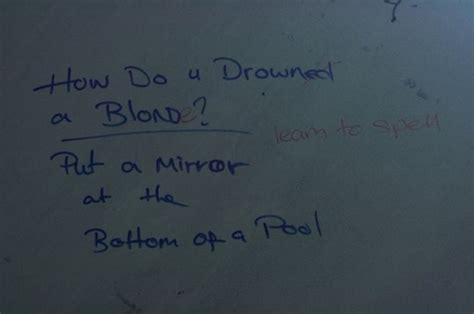 How Do u Drowned
a Blonde?
learn to spell
Put a Mirror
at the
Bottom of a Pool